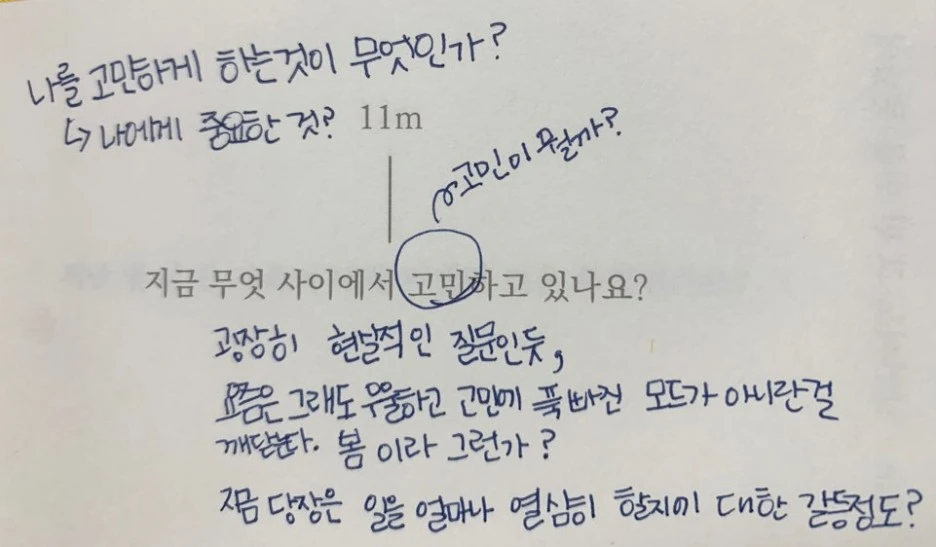 나를 고민하게 하는것이 무엇인가?
↳ 나에게 중요한 것?
11m
고민이 뭘까?
지금 무엇 사이에서 고민하고 있나요?
굉장히 현실적인 질문인듯,
요즘은 그래도 우울하고 고민에 푹 빠진 모드가 아니란걸
깨닫는다. 봄이라 그런가?
지금 당장은 일을 얼마나 열심히 할지에 대한 갈등정도?